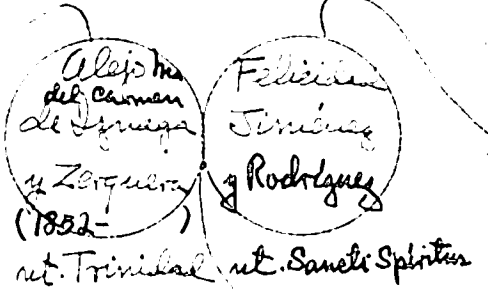 Alejo Ma
del Carmen
de Iznaga
y Zerquera
(1852-      )
nt. Trinidad
Felicidad
Jiménez
y Rodríguez
nt. Sancti Spíritus